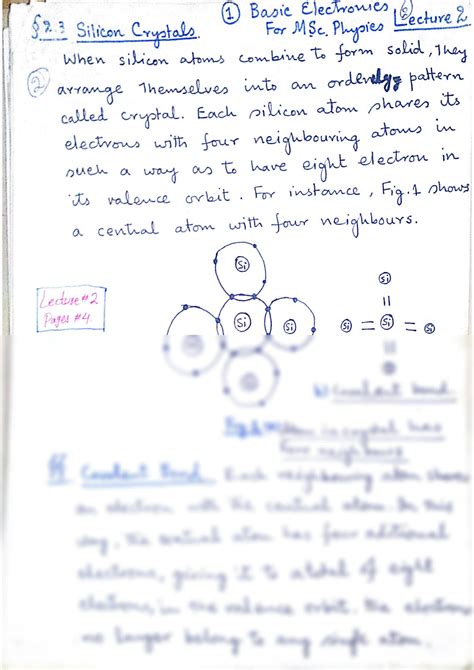 ① Basic Electronics
§2.3 Silicon Crystals. For MSc, Physics Lecture 2
When silicon atoms combine to form solid, They
② arrange Themselves into an orderly pattern
called crystal. Each silicon atom shares its
electrons with four neighbouring atoms in
such a way as to have eight electron in
its valence orbit. For instance, Fig.1 shows
a central atom with four neighbours.
Si
Si
Lecture #2
Pages #4
Si Si
Si = Si = Si
b) Covalent bond.
Four neighbours
§§ Covalent Bond. Each neighbouring atom shares
an electron with the central atom. In this
way, the central atom has four
electrons, giving it to a total of eight
electrons, in the valence orbit. The electrons
no longer belong to any single atom.